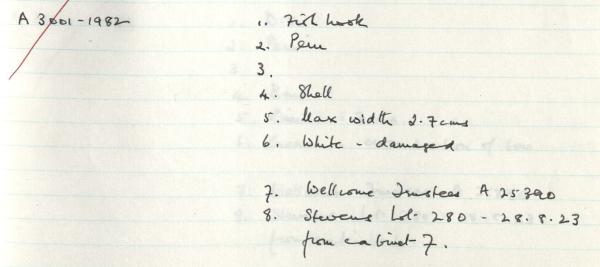 A 3001-1982 1. Fish hook
2. Peru
3.
4. Shell
5. Max width 2.7cms
6. White - damaged
7. Wellcome Trustees A 25390
8. Stevens Lot 280 - 28.8.23
from cabinet 7.